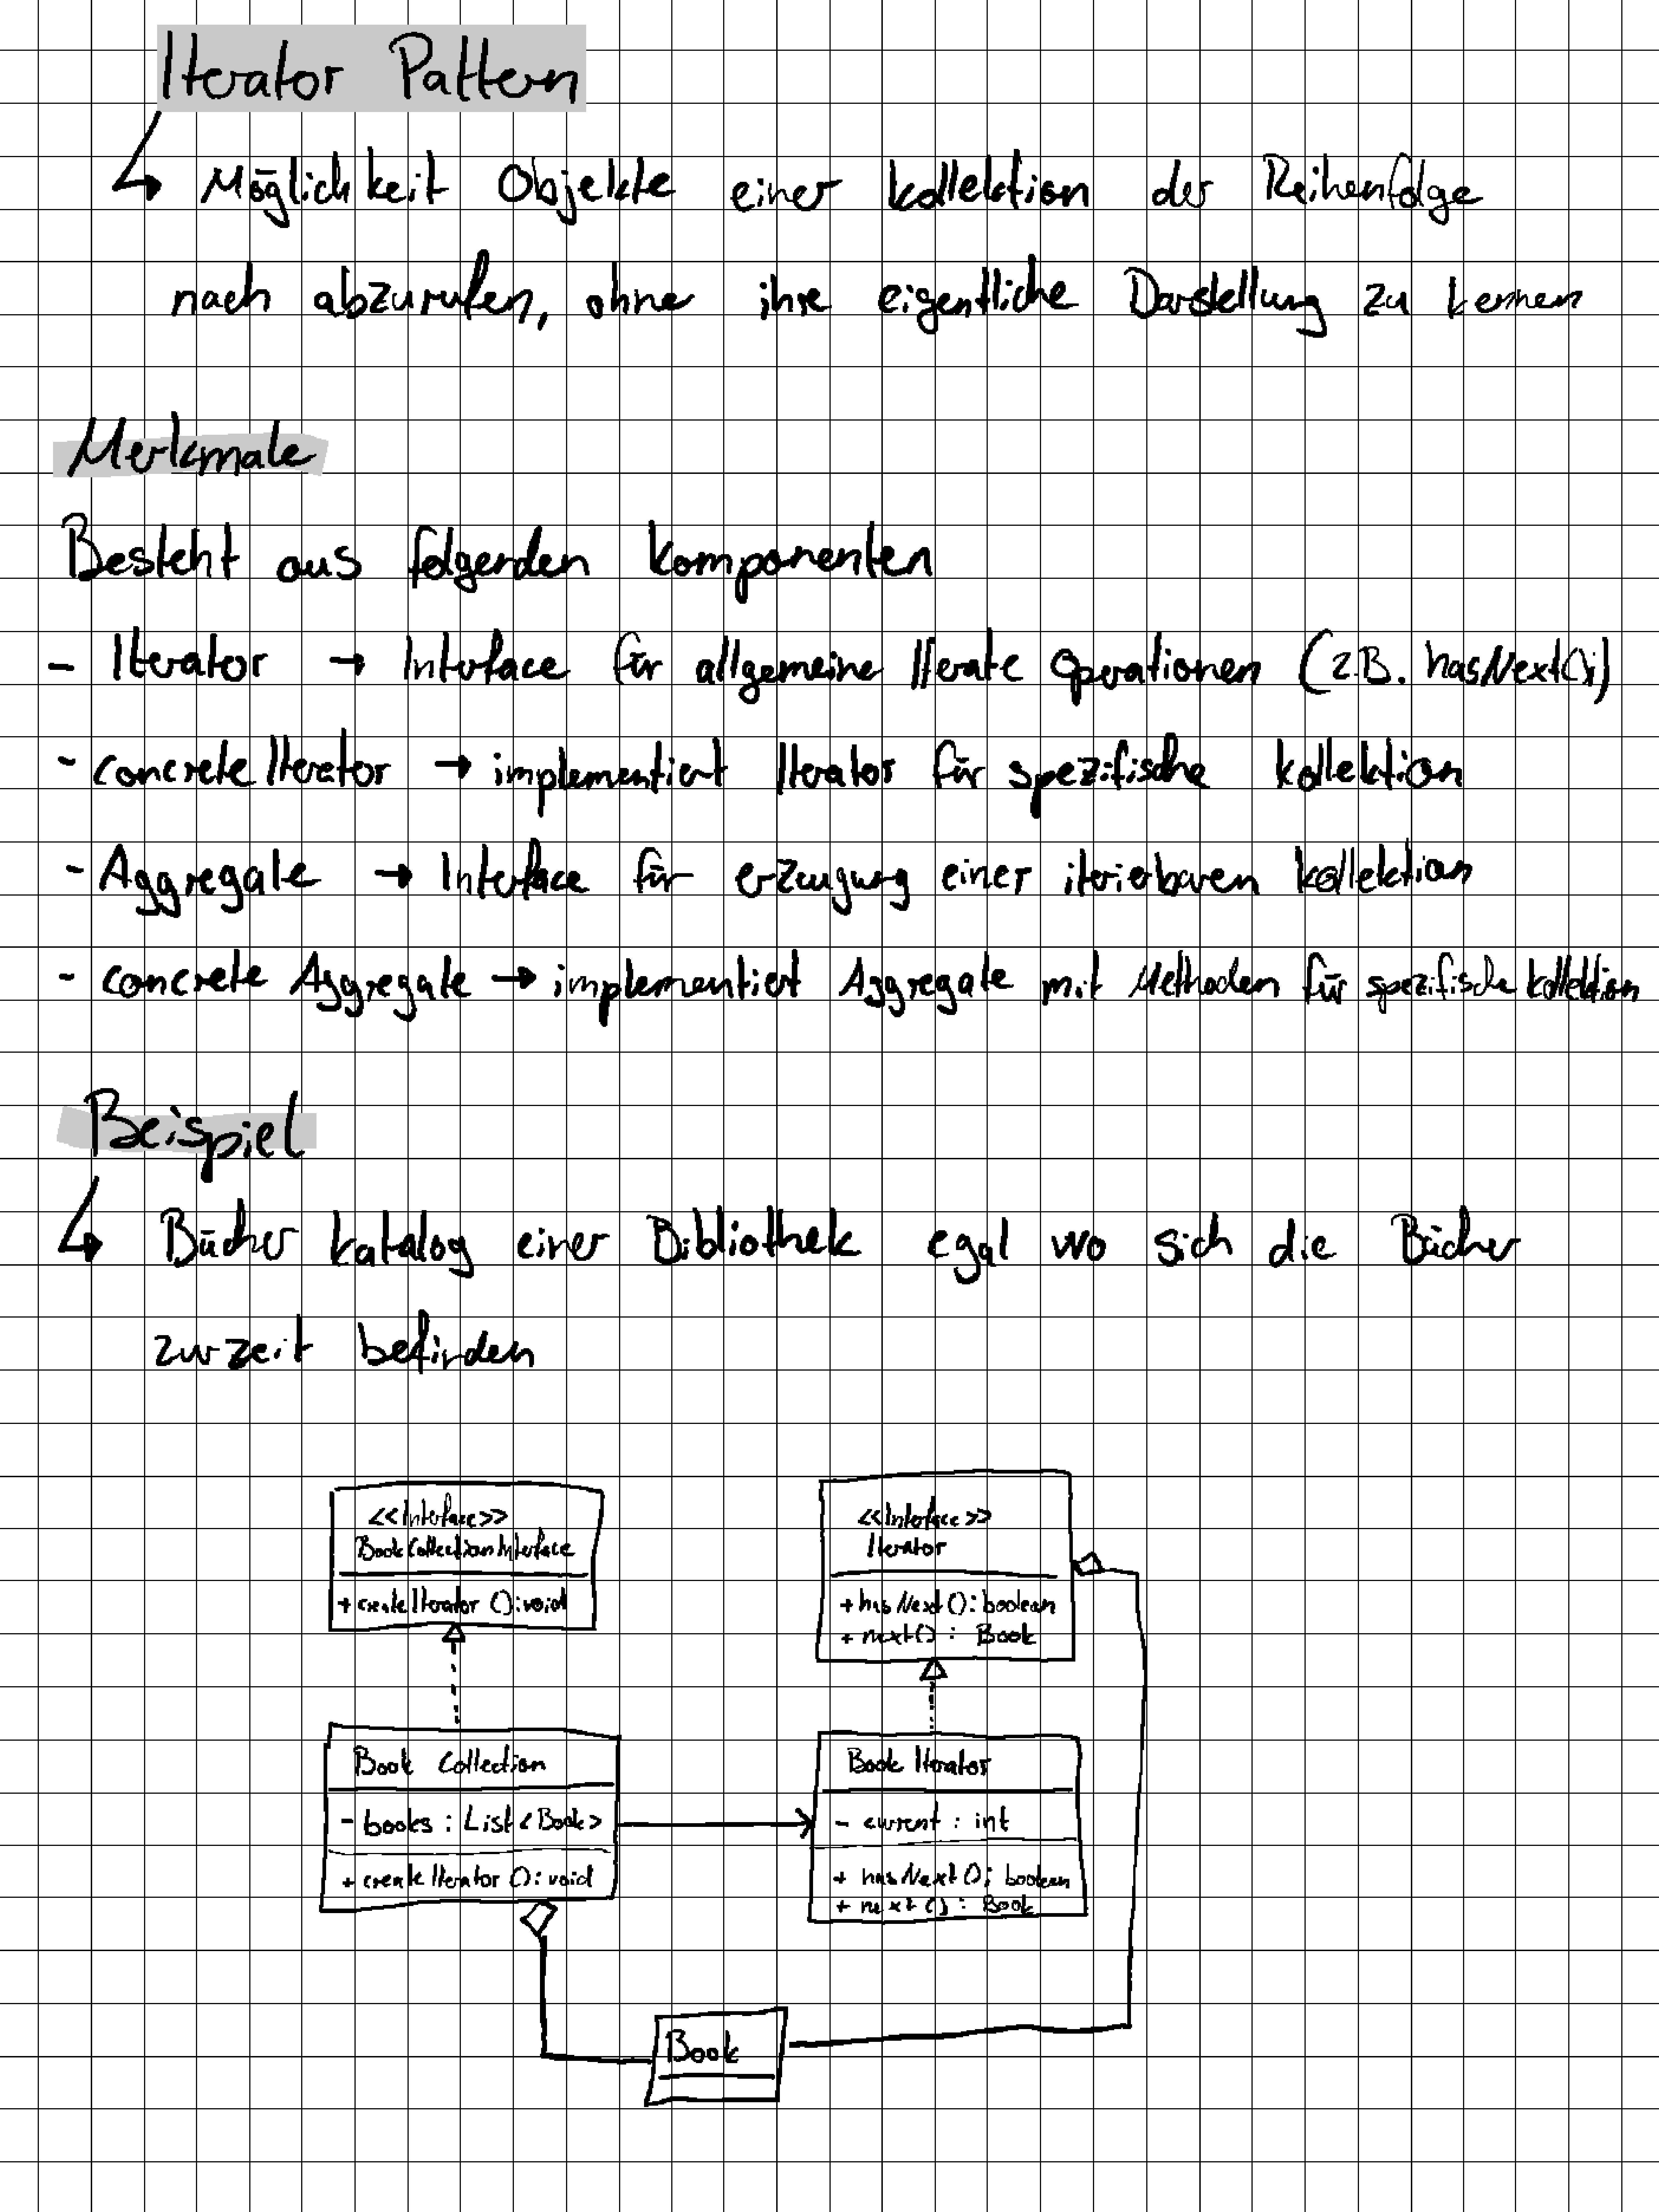 Iterator Pattern
↳ Möglichkeit Objekte einer Kollektion der Reihenfolge
nach abzurufen, ohne ihre eigentliche Darstellung zu kennen
Merkmale
Besteht aus folgenden Komponenten
- Iterator → Interface für allgemeine Iterate Operationen (z.B. hasNext();)
- concrete Iterator → implementiert Iterator für spezifische Kollektion
- Aggregate → Interface für erzeugung einer iterierbaren Kollektion
- concrete Aggregate → implementiert Aggregate mit Methoden für spezifische Kollektion
Beispiel
↳ Bücher katalog einer Bibliothek egal wo sich die Bücher
zurzeit befinden
<<Interface>>
BookCollectionInterface
+ createIterator (): void
<<Interface>>
Iterator
+ hasNext (): boolean
+ next() : Book
Book Collection
- books : List<Book>
+ createIterator (): void
Book Iterator
- current : int
+ hasNext (): boolean
+ next () : Book
Book